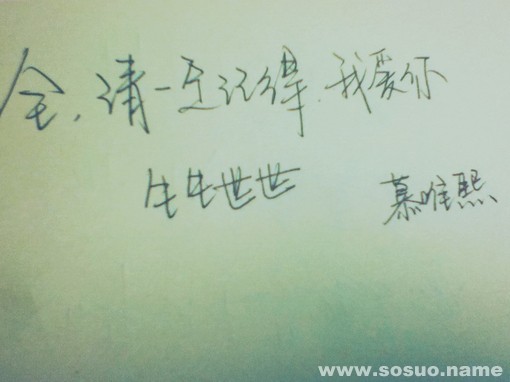 全,请一定记得,我爱你
生生世世
慕唯熙
www.sosuo.name